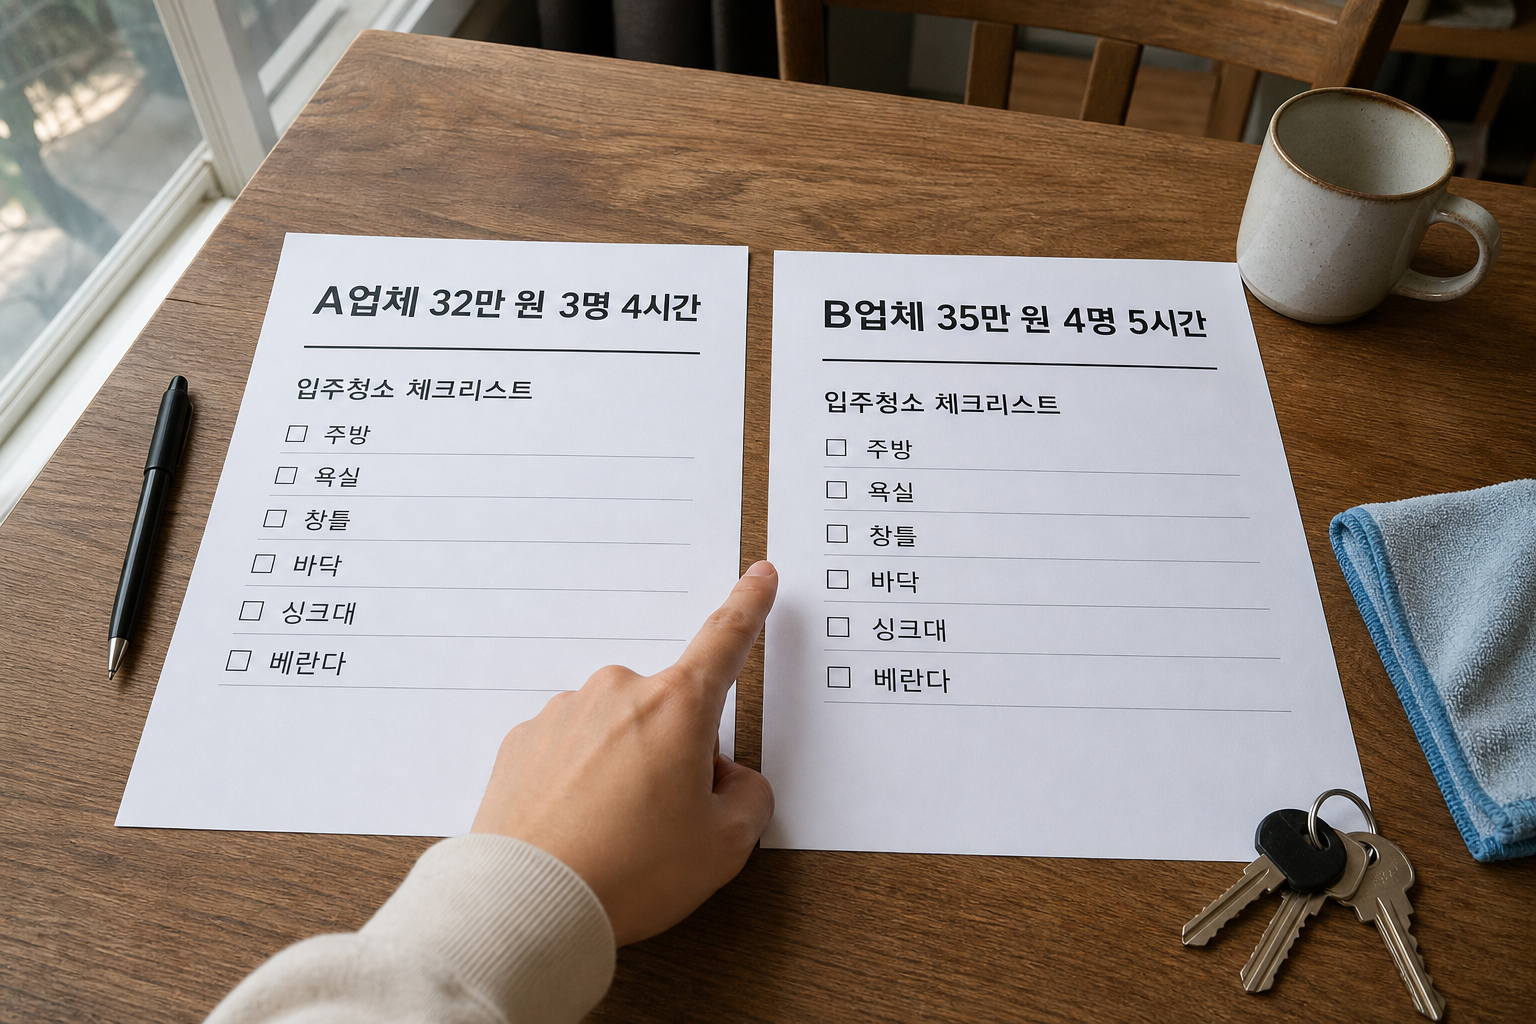 A업체 32만 원 3명 4시간
입주청소 체크리스트
주방
욕실
창틀
바닥
싱크대
베란다
B업체 35만 원 4명 5시간
입주청소 체크리스트
주방
욕실
창틀
바닥
싱크대
베란다